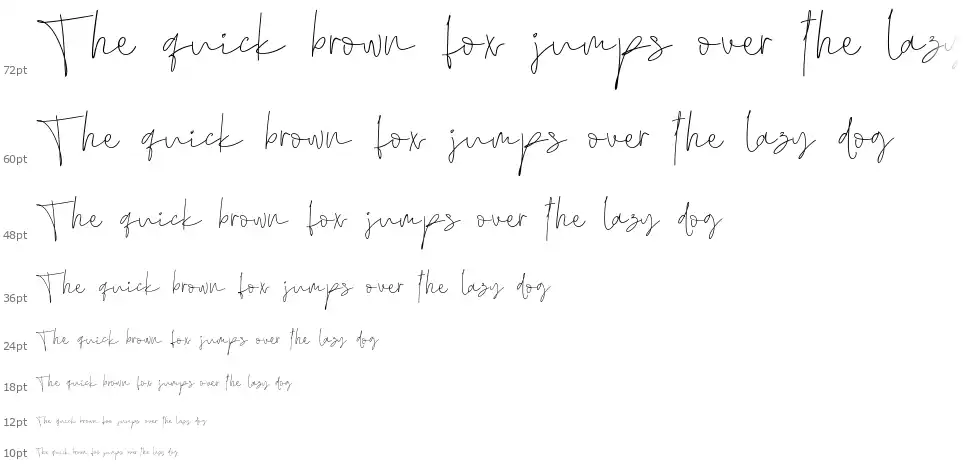 72pt The quick brown fox jumps over the lazy
60pt The quick brown fox jumps over the lazy dog
48pt The quick brown fox jumps over the lazy dog
36pt The quick brown fox jumps over the lazy dog
24pt The quick brown fox jumps over the lazy dog
18pt The quick brown fox jumps over the lazy dog
12pt The quick brown fox jumps over the lazy dog
10pt The quick brown fox jumps over the lazy dog